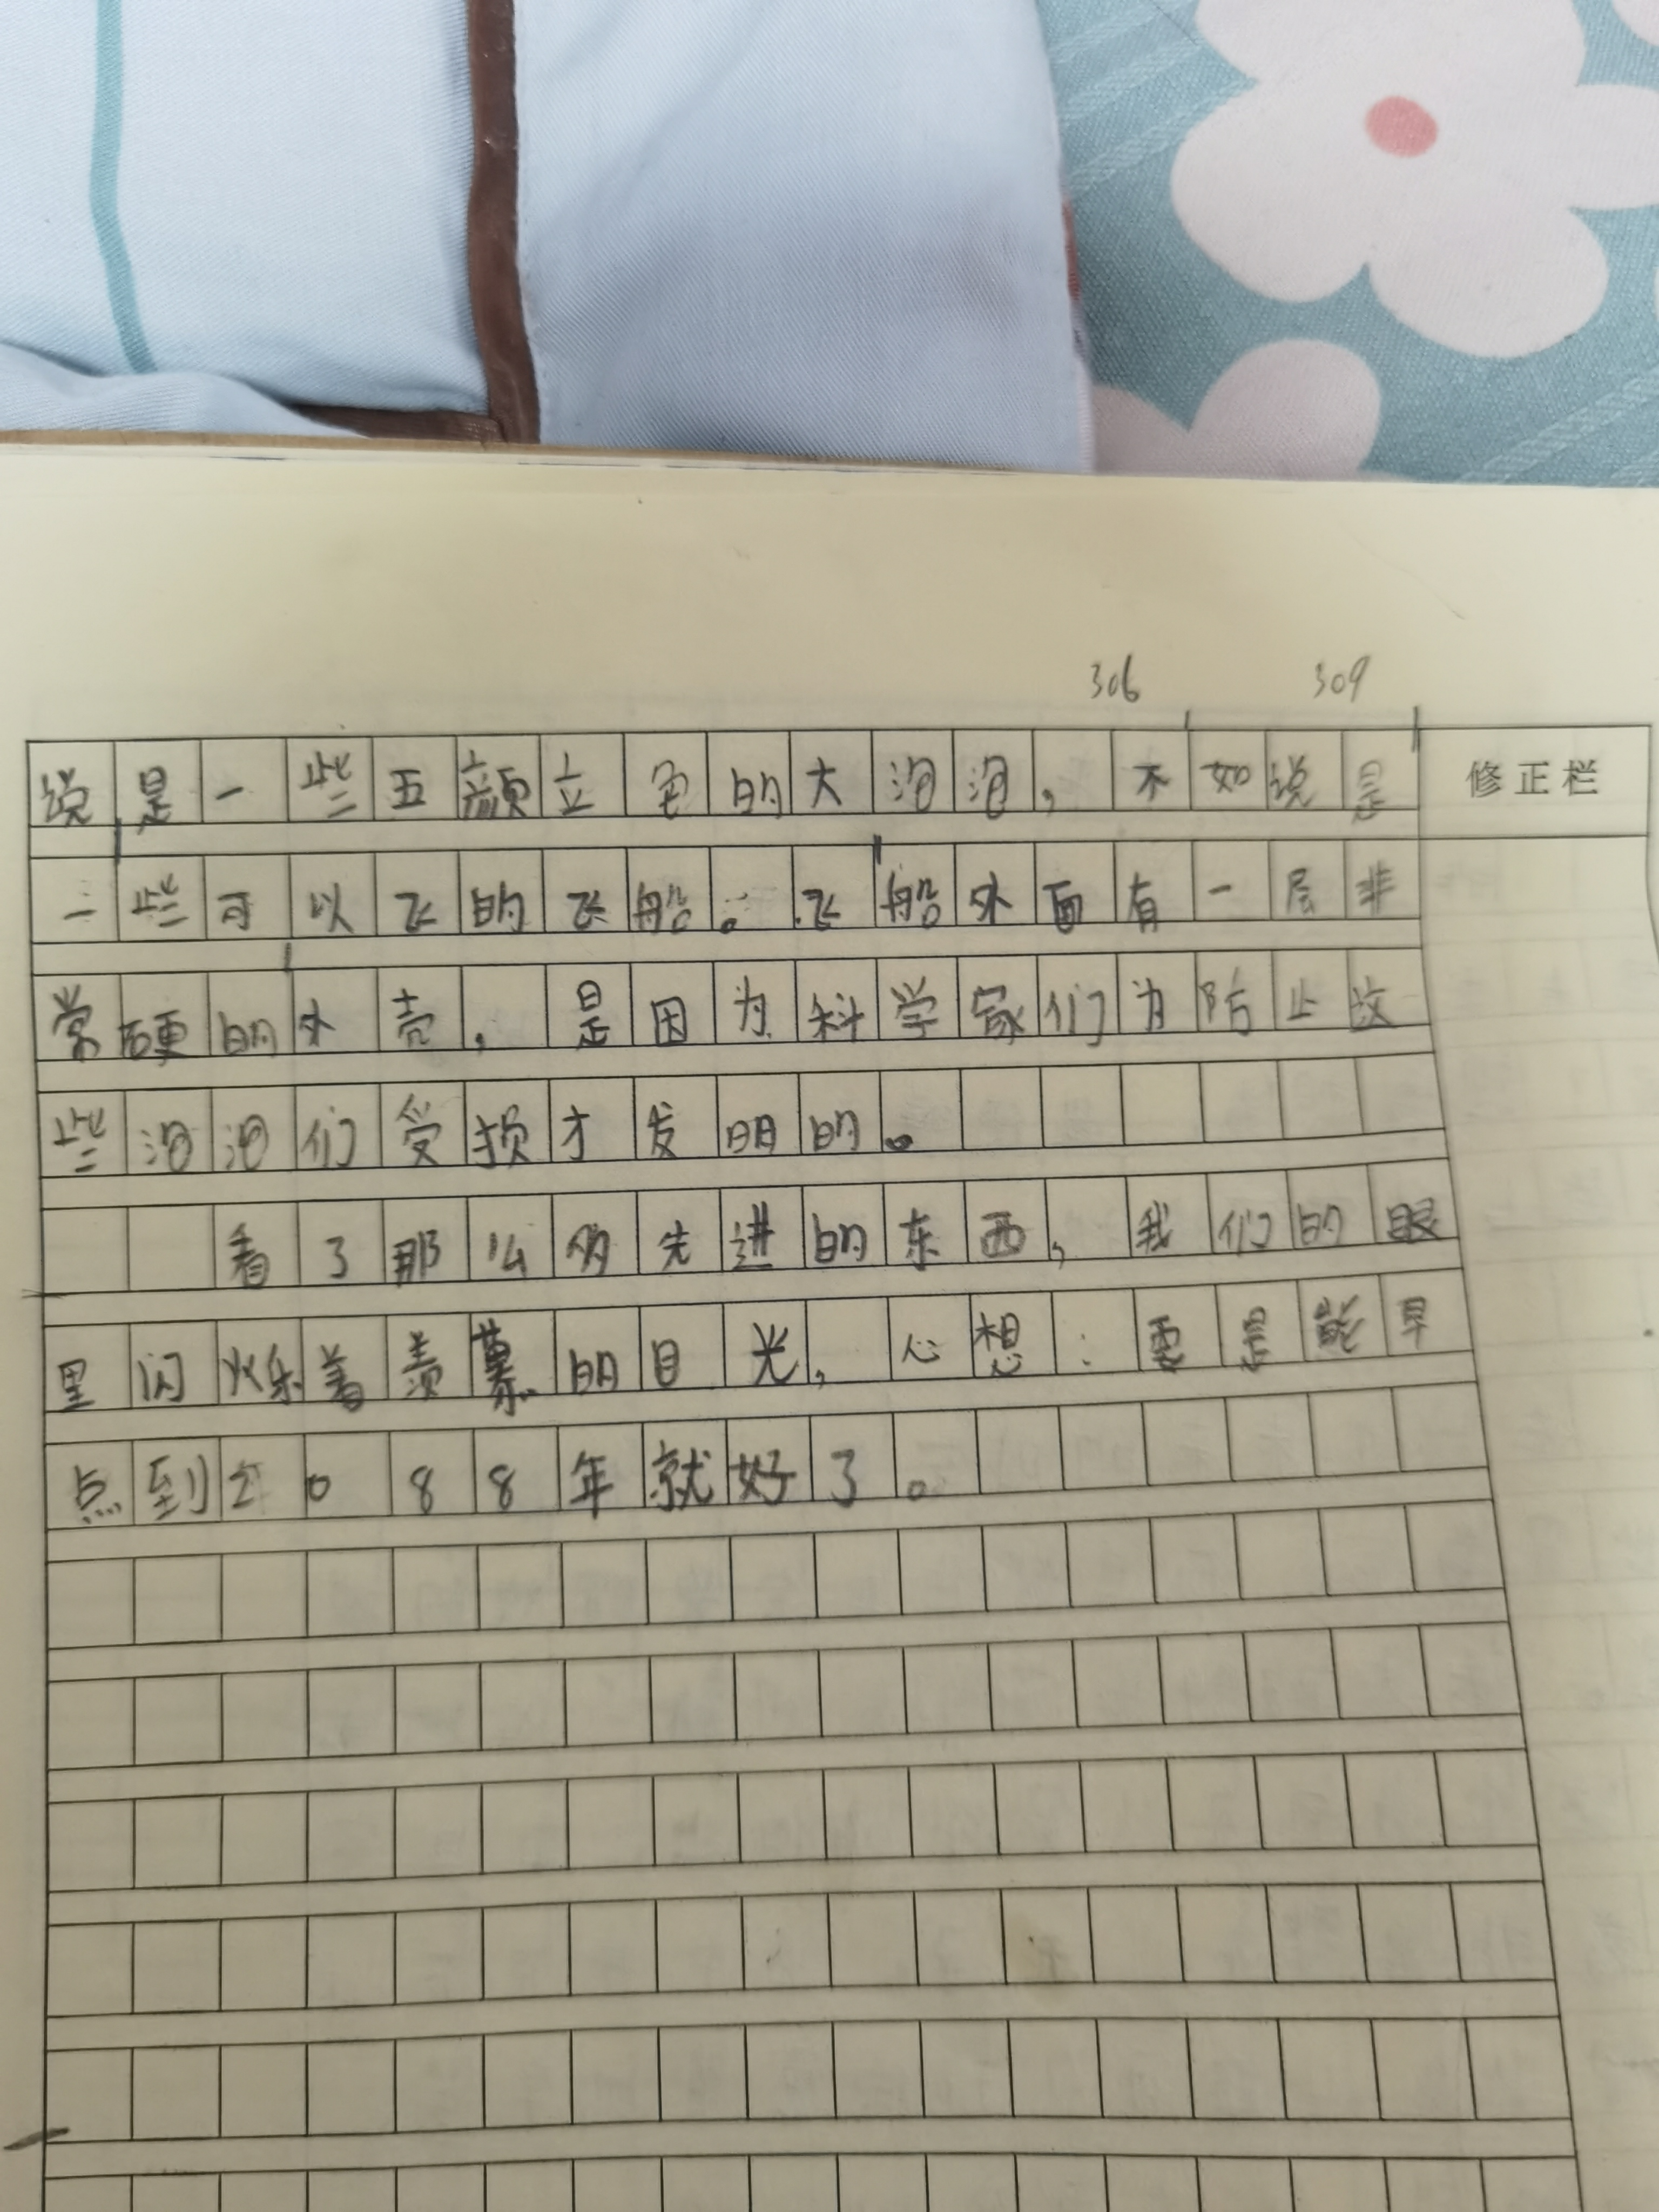 306 309
说是一些五颜立色的大泡泡，不如说是
修正栏
一些可以飞的飞船。飞船外面有一层非
常硬的外壳，是因为科学家们为防止这
些泡泡们受损才发明的。
看了那么多先进的东西，我们的眼
里闪烁着羡慕的目光，心想：要是能早
点到2088年就好了。